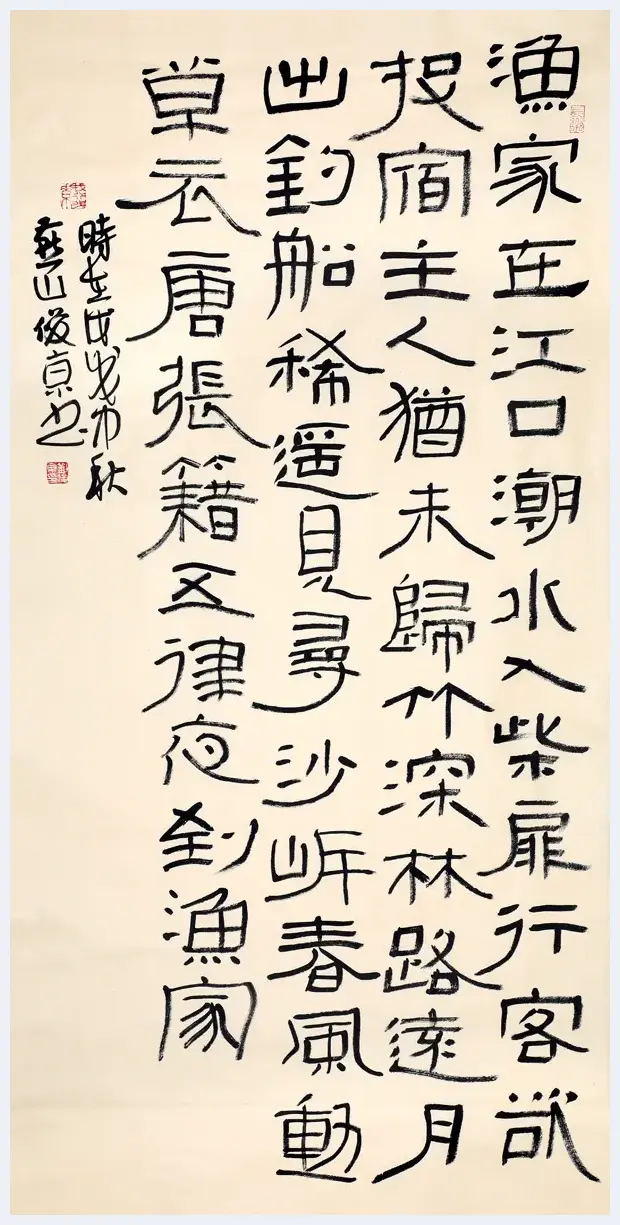 漁家在江口潮水入柴扉行客欲
投宿主人猶未歸竹深林路遠月
出釣船稀遥見尋沙岸春風動
草衣唐張籍五律夜到漁家
時在戊戌中秋
燕山俊京书